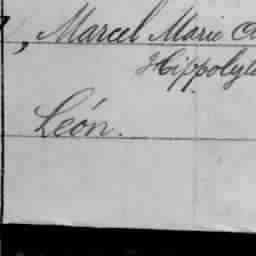 , Marcel Marie
Hippolyte
Léon.